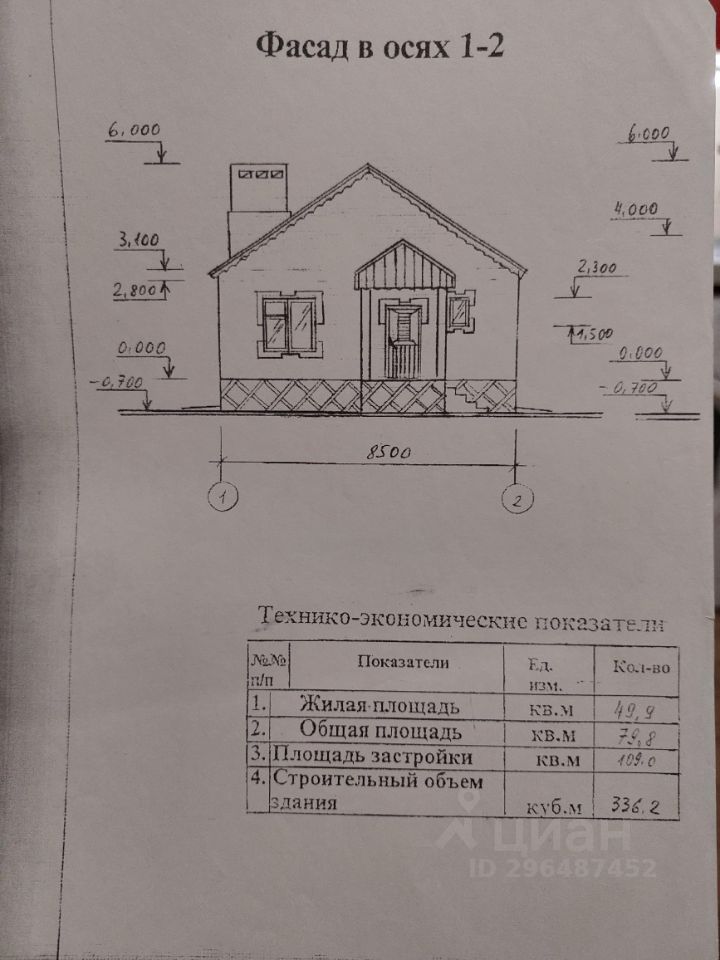 Фасад в осях 1-2
6,000
6.000
4,000
3,100
2,300
2,800
1,500
0,000
0,000
-0,700
-0,700
8500
1
2
Технико-экономические показатели
№№ п/п Показатели Ед. изм. Кол-во
1. Жилая площадь кв.м 49,9
2. Общая площадь кв.м 79,8
3. Площадь застройки кв.м 109.0
4. Строительный объем
здания куб.м 336.2
циан
ID 296487452